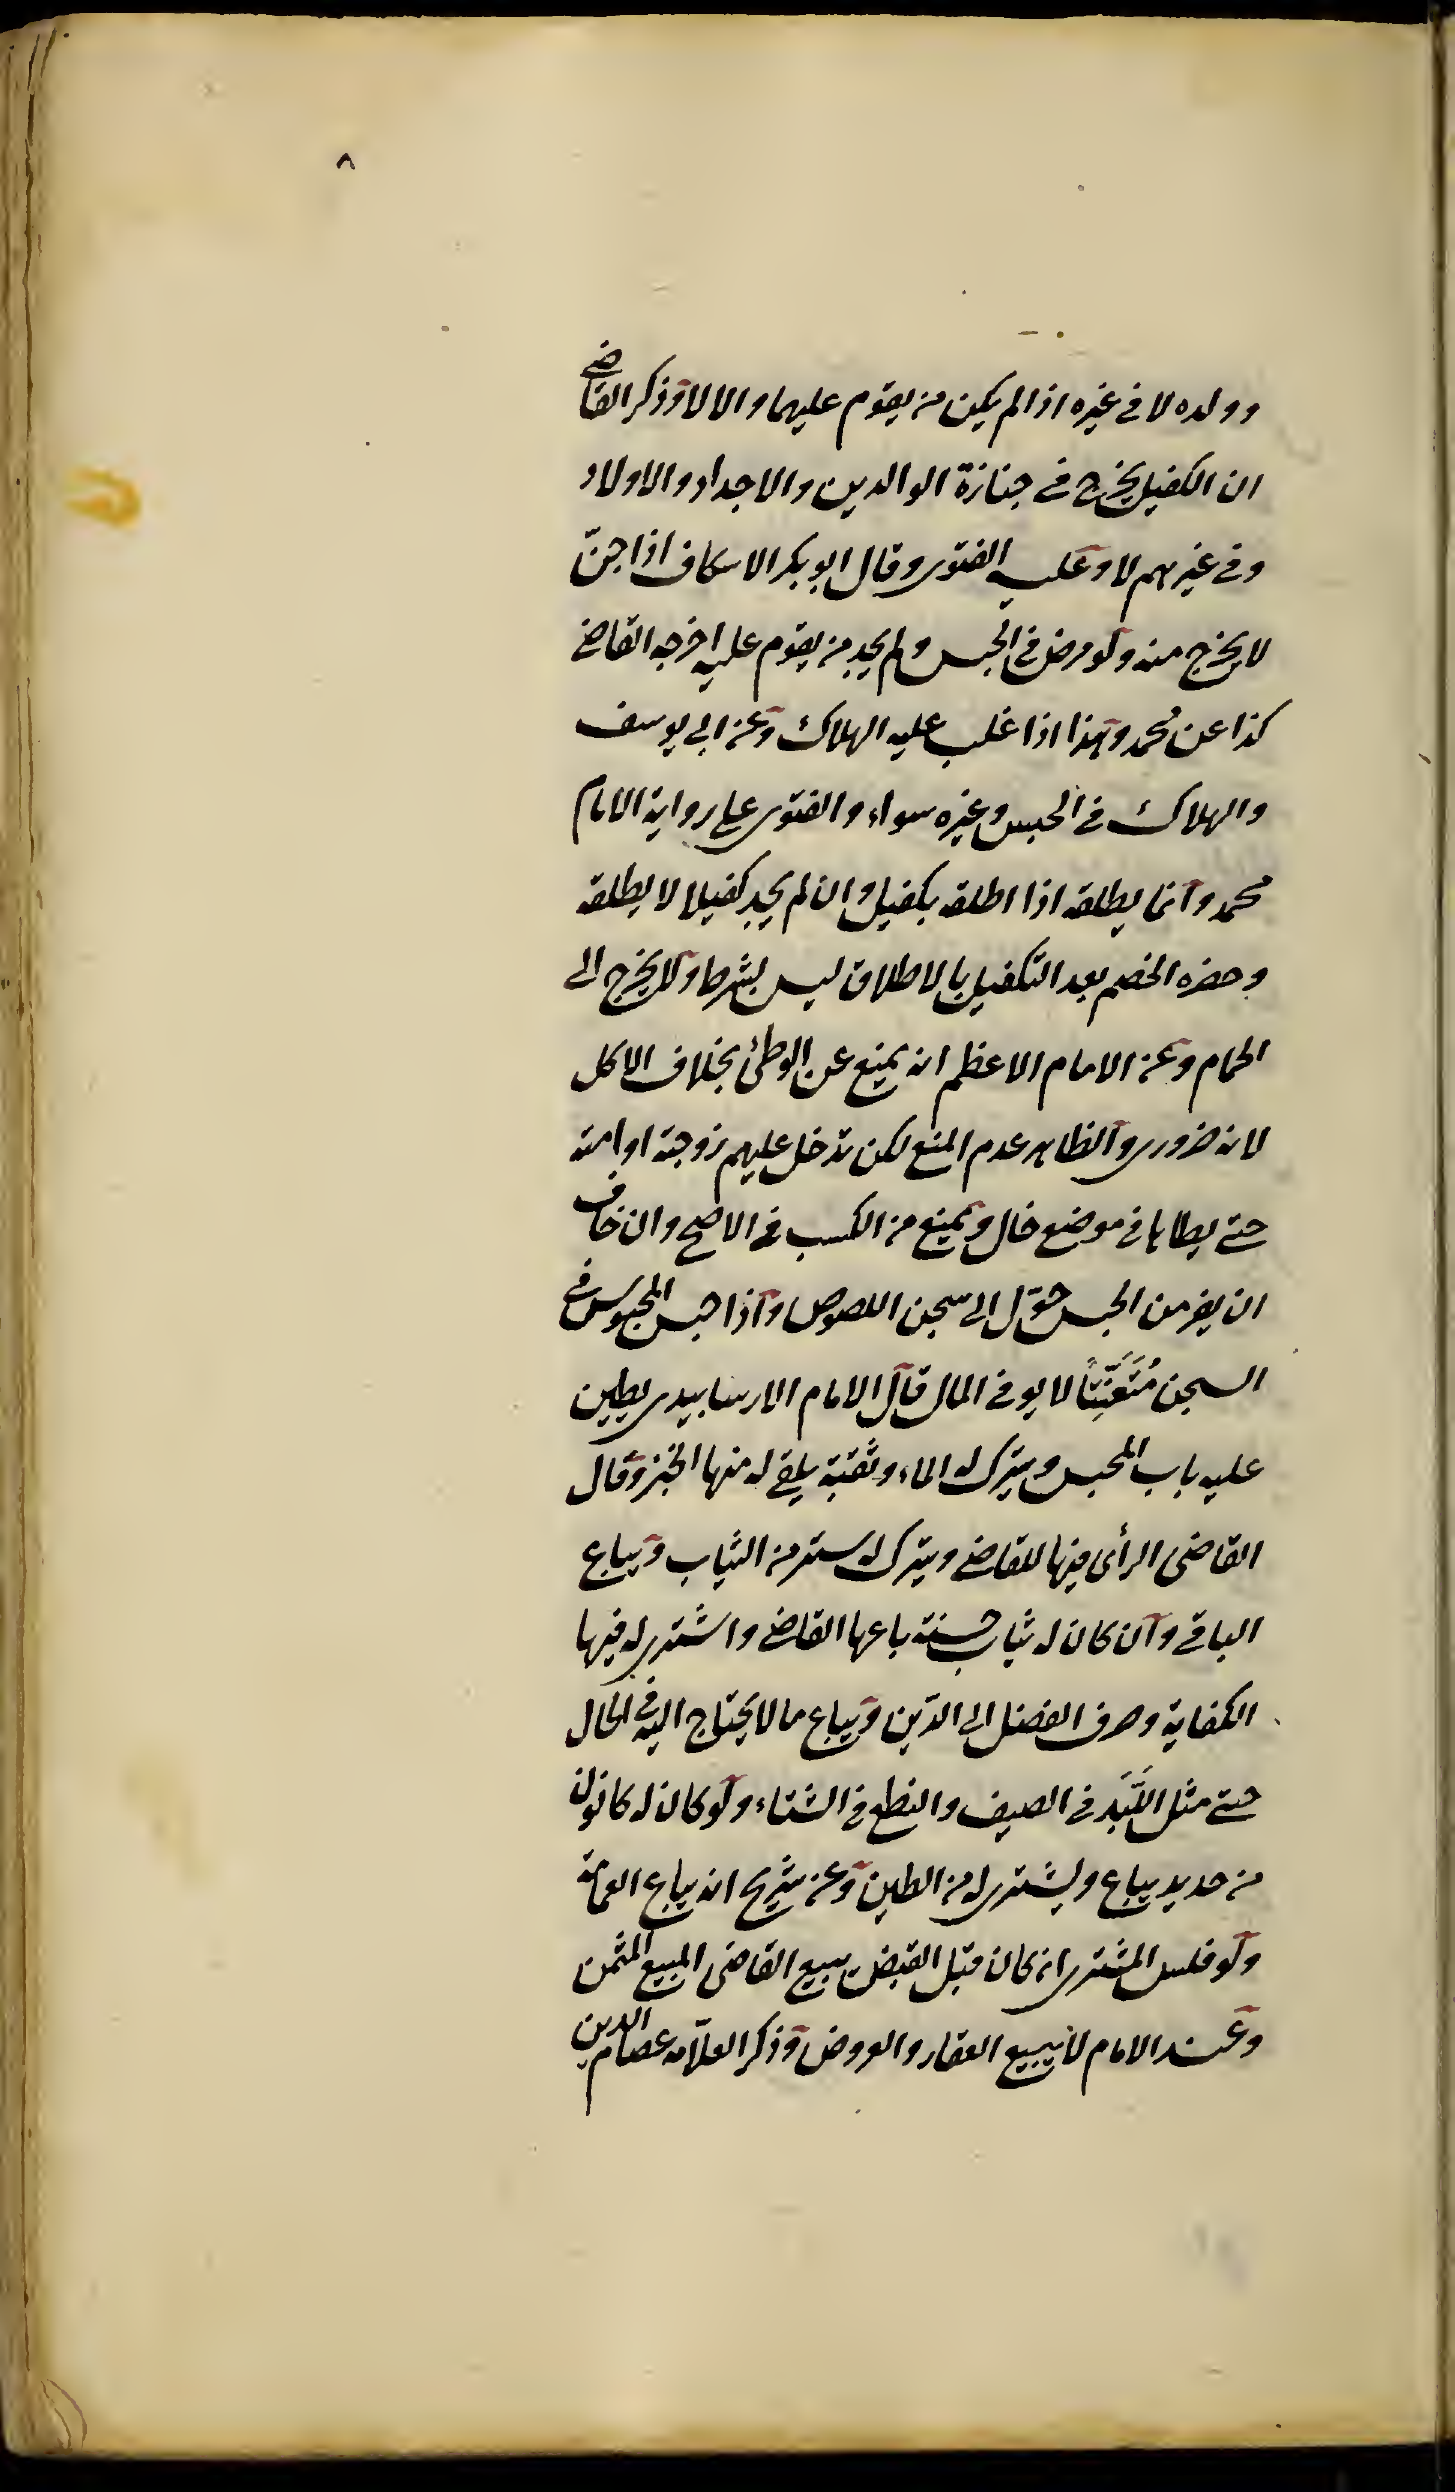 ٨
وولده لا فى غيره اذا لم يكن من يقوم عليهما والا لا وذكر القاضى
ان الكفيل يخرج فى جنازة الوالدين والاجداد والاولاد
وفى غيرهم لا وعليه الفتوى وقال ابو بكر الاسكاف اذا جنّ
لا يخرج منه ولو مرض فى الحبس ولم يجد من يقوم عليه اخرجه القاضى
كذا عن محمد وهذا اذا غلب عليه الهلاك وعن ابى يوسف
والهلاك فى الحبس وغيره سواء والفتوى على رواية الامام
محمد وانما يطلقه اذا اطلقه بكفيل وان لم يجد كفيلا لا يطلقه
وحضره الخصم بعد التكفيل بالاطلاق ليس بشرط ولا يخرج الى
الحمام وعن الامام الاعظم انه يمنع عن الوطئ بخلاف الاكل
لانه ضرورى والظاهر عدم المنع لكن تدخل عليهم زوجته او امته
حتى يطاها فى موضع خال ويمنع من الكسب فى الاصح وان خاف
ان يفر من الحبس حوّل الى سجن اللصوص واذا حبس المحبوس فى
السجن مُتَعَنِّتاً لا يوفى المال قال الامام الارسابيدى يطين
عليه باب المحبس ويترك له الماء وثقبة يلقى له منها الخبز وقال
القاضى الرأى فيها للقاضى ويترك له دستر من الثياب ويباع
الباقى وان كان له ثياب حسنة باعها القاضى واشترى له فيها
الكفاية وصرف الفضل الى الدّين ويباع ما لا يحتاج اليه فى الحال
حتى مثل اللَّبَد فى الصيف والنطع فى الشتاء ولو كان له كانون
من حديد يباع ويشترى له من الطين وعن شريح انه يباع العمامة
ولو فلس المشترى ان كان قبل القبض يبيع القاضى المبيع المثمن
وعند الامام لا يبيع العقار والعروض وذكر العلّامه عصام الدين